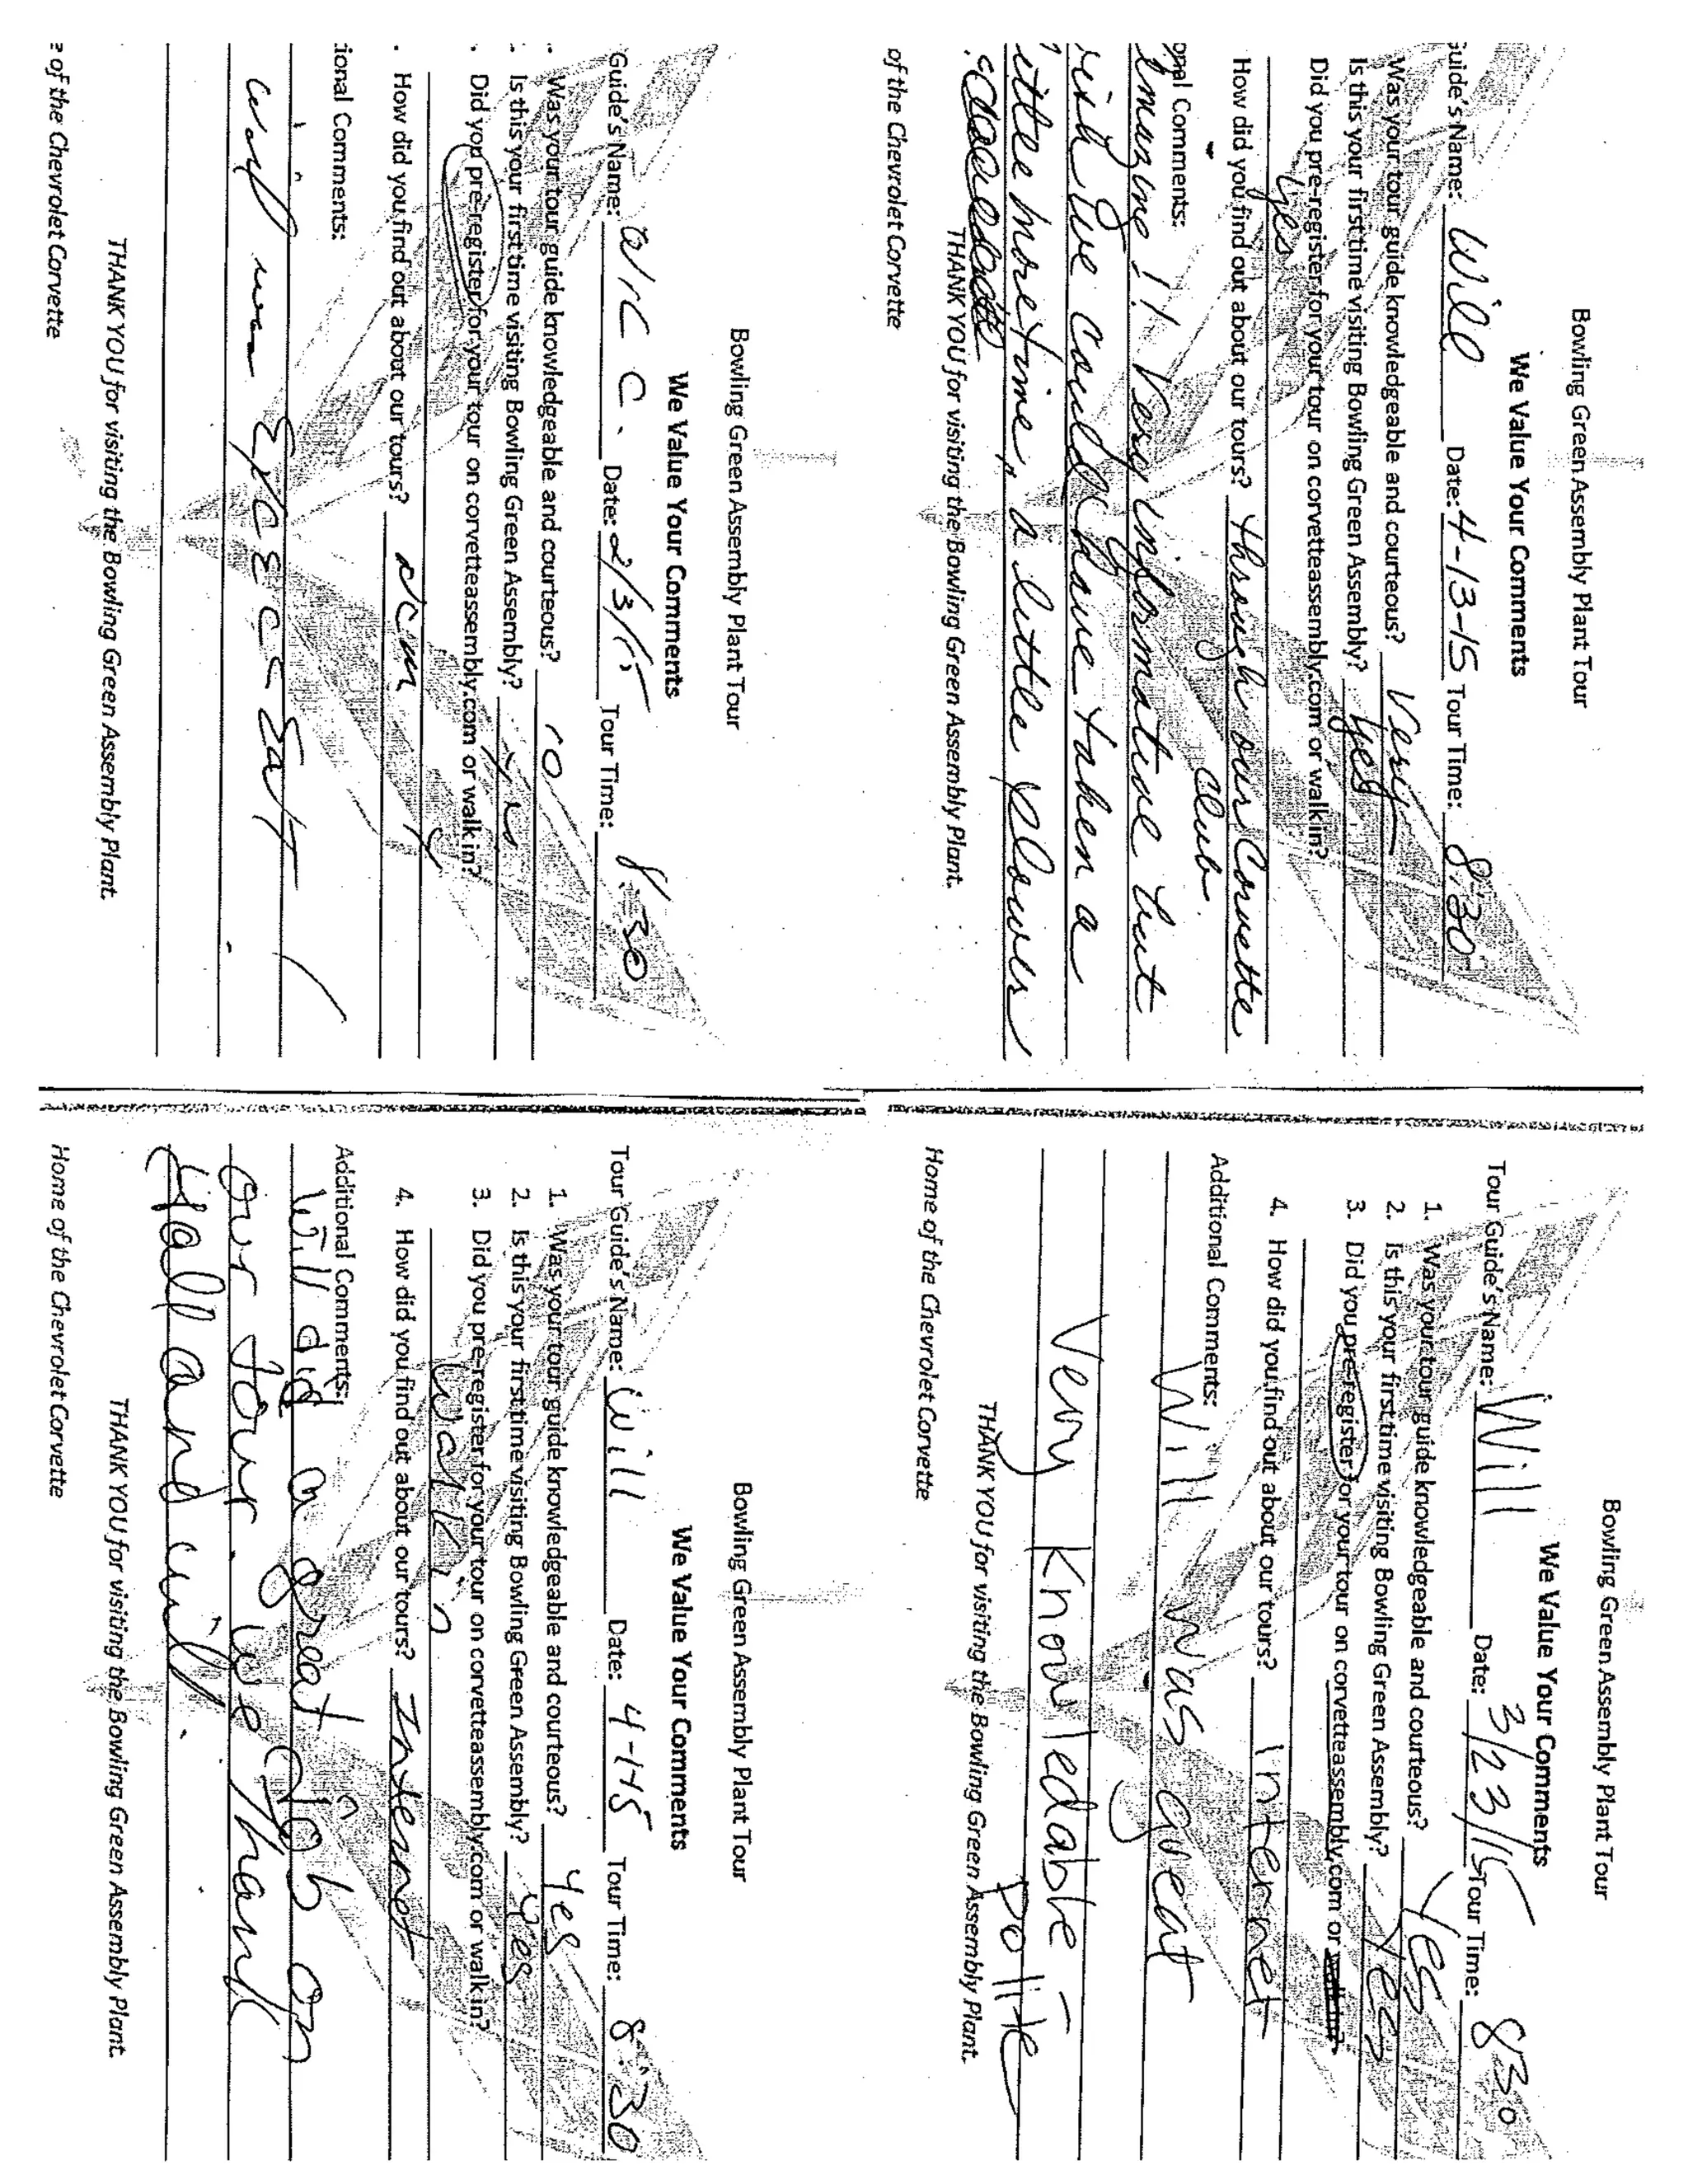 Bowling Green Assembly Plant Tour
We Value Your Comments
Guide's Name: Will Date: 4-13-15 Tour Time: 8:30
Was your tour guide knowledgeable and courteous? Very
Is this your first time visiting Bowling Green Assembly? yes
Did you pre-register for your tour on corvetteassembly.com or walk in?
yes
How did you find out about our tours? through our Corvette
Club.
onal Comments:
Amazing!! Very informative but
wish we could have taken a
little more time, a little slower
THANK YOU for visiting the Bowling Green Assembly Plant.
of the Chevrolet Corvette
Bowling Green Assembly Plant Tour
We Value Your Comments
Tour Guide's Name: Will Date: 3/23/15 Tour Time: 830
1. Was your tour guide knowledgeable and courteous? Yes
2. Is this your first time visiting Bowling Green Assembly? Yes
3. Did you pre-register for your tour on corvetteassembly.com or walk in?
4. How did you find out about our tours? Internet
Additional Comments:
Will was great
Very Knowledable -
polite
THANK YOU for visiting the Bowling Green Assembly Plant.
Home of the Chevrolet Corvette
Bowling Green Assembly Plant Tour
We Value Your Comments
Guide's Name: C. Date: 2/3/15 Tour Time: 8:30
Was your tour guide knowledgeable and courteous? 10
Is this your first time visiting Bowling Green Assembly? yes
Did you pre-register for your tour on corvetteassembly.com or walk in?
How did you find out about our tours? NCM
ional Comments:
was
THANK YOU for visiting the Bowling Green Assembly Plant.
e of the Chevrolet Corvette
Bowling Green Assembly Plant Tour
We Value Your Comments
Tour Guide's Name: Will Date: 4-1-15 Tour Time: 8:30
1. Was your tour guide knowledgeable and courteous? Yes
2. Is this your first time visiting Bowling Green Assembly? Yes
3. Did you pre-register for your tour on corvetteassembly.com or walk in?
Walk in
4. How did you find out about our tours? Internet
Additional Comments:
Will did a great job on
our tour. We Thank
Yall and will.
THANK YOU for visiting the Bowling Green Assembly Plant.
Home of the Chevrolet Corvette